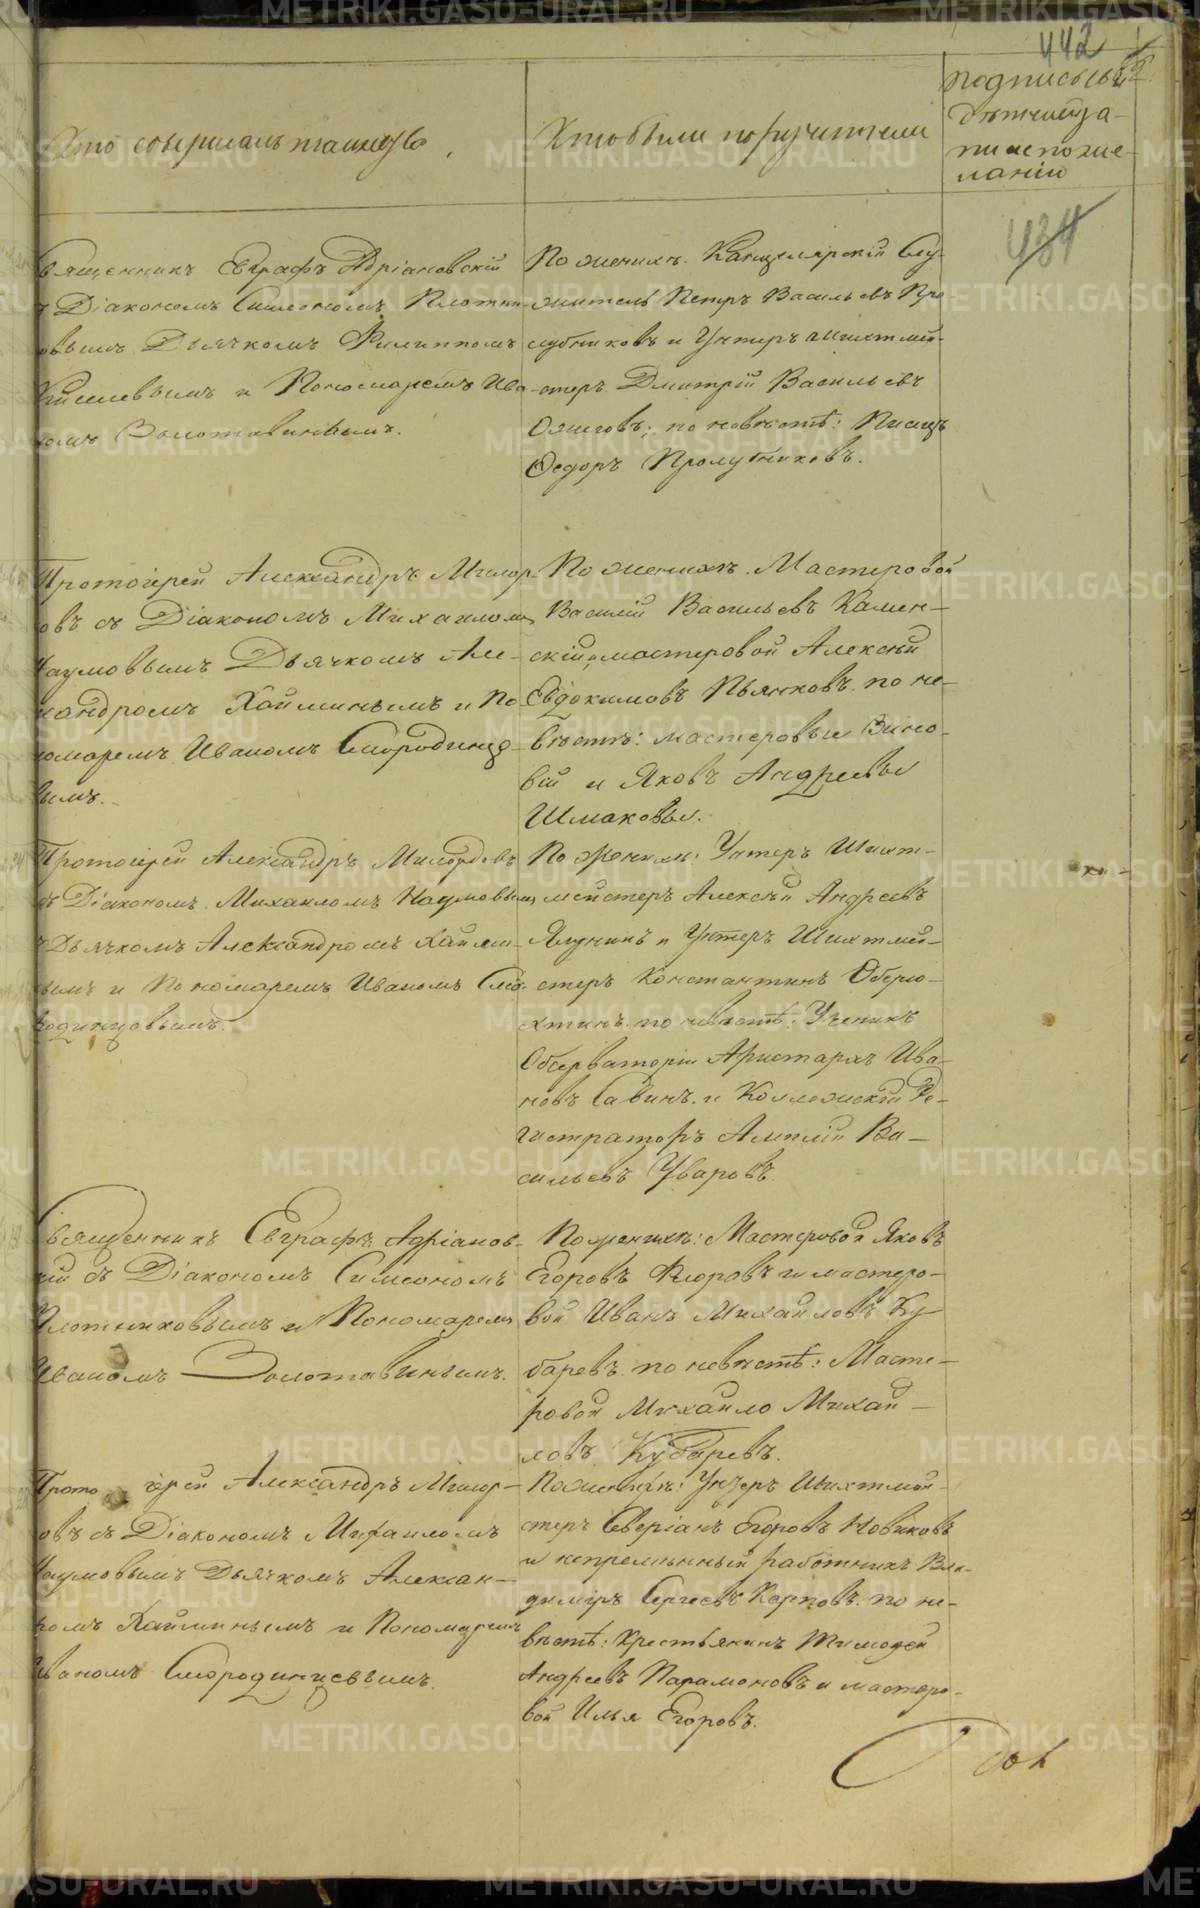 442
Кто совершалъ таинство
Кто были поручители
Подпись сви
дѣтелей за-
писи по же-
ланію
434
Священникъ Евграфъ Адріановскій
съ Діакономъ Симеономъ Плотни
ковымъ Дьячкомъ Филиппомъ
Киселевымъ и Пономаремъ Ива
номъ Золотавинымъ.
По женихѣ: Канцелярскій Слу-
житель Петръ Васильевъ Про
лубниковъ и Унтеръ шихтмей-
стеръ Дмитрій Васильевъ
Ожиговъ; по невѣстѣ: Писецъ
Ѳедоръ Пролубниковъ.
Протоіерей Александръ Милор-
овъ съ Діакономъ Михаиломъ
Наумовымъ Дьячкомъ Але-
ксандромъ Хайминымъ и По
номаремъ Иваномъ Смородинцо
вымъ.
По женихѣ: Мастеровой
Василій Васильевъ Камен-
скій, и мастеровой Алексѣй
Евдокимовъ Пьянковъ. по не-
вѣстѣ: мастеровые Зино-
вій и Яковъ Андреевы
Шмаковы.
Протоіерей Александръ Милордовъ
съ Діакономъ Михаиломъ Наумовымъ
съ Дьячкомъ Александромъ Хайми-
нымъ и Пономаремъ Иваномъ Смо-
родинцовымъ.
По женихѣ: Унтеръ Шихт-
мейстеръ Алексѣй Андреевъ
Ялунинъ и Унтеръ Шихтмей-
стеръ Константинъ Оберю-
хтинъ. по невѣстѣ: Ученикъ
Обсерваторіи Аристархъ Ива-
новъ Савинъ. и Коллежскій Ре-
гистраторъ Амплій Ва-
сильевъ Уваровъ.
Священникъ Евграфъ Адріанов-
скій съ Діакономъ Симеономъ
Плотниковымъ и Пономаремъ
Иваномъ Золотавинымъ.
По женихѣ: Мастеровой Яковъ
Егоровъ Флоровъ и мастеро-
вой Иванъ Михайловъ Ку-
баревъ. по невѣстѣ: Масте-
ровой Михайло Михай-
ловъ Кубаревъ.
Протоіерей Александръ Милор-
овъ съ Діакономъ Михаиломъ
Наумовымъ Дьячкомъ Алексан-
дромъ Хайминымъ и Пономаремъ
Иваномъ Смородинцевымъ.
По женихѣ: Унтеръ Шихтмей-
стеръ Северіанъ Егоровъ Новиковъ
и непремѣнный работникъ Вла-
диміръ Сергеевъ Карповъ. по не-
вѣстѣ: Крестьянинъ Тимоѳей
Андреевъ Парамоновъ и мастеро-
вой Илья Егоровъ.
METRIKI.GASO-URAL.RU